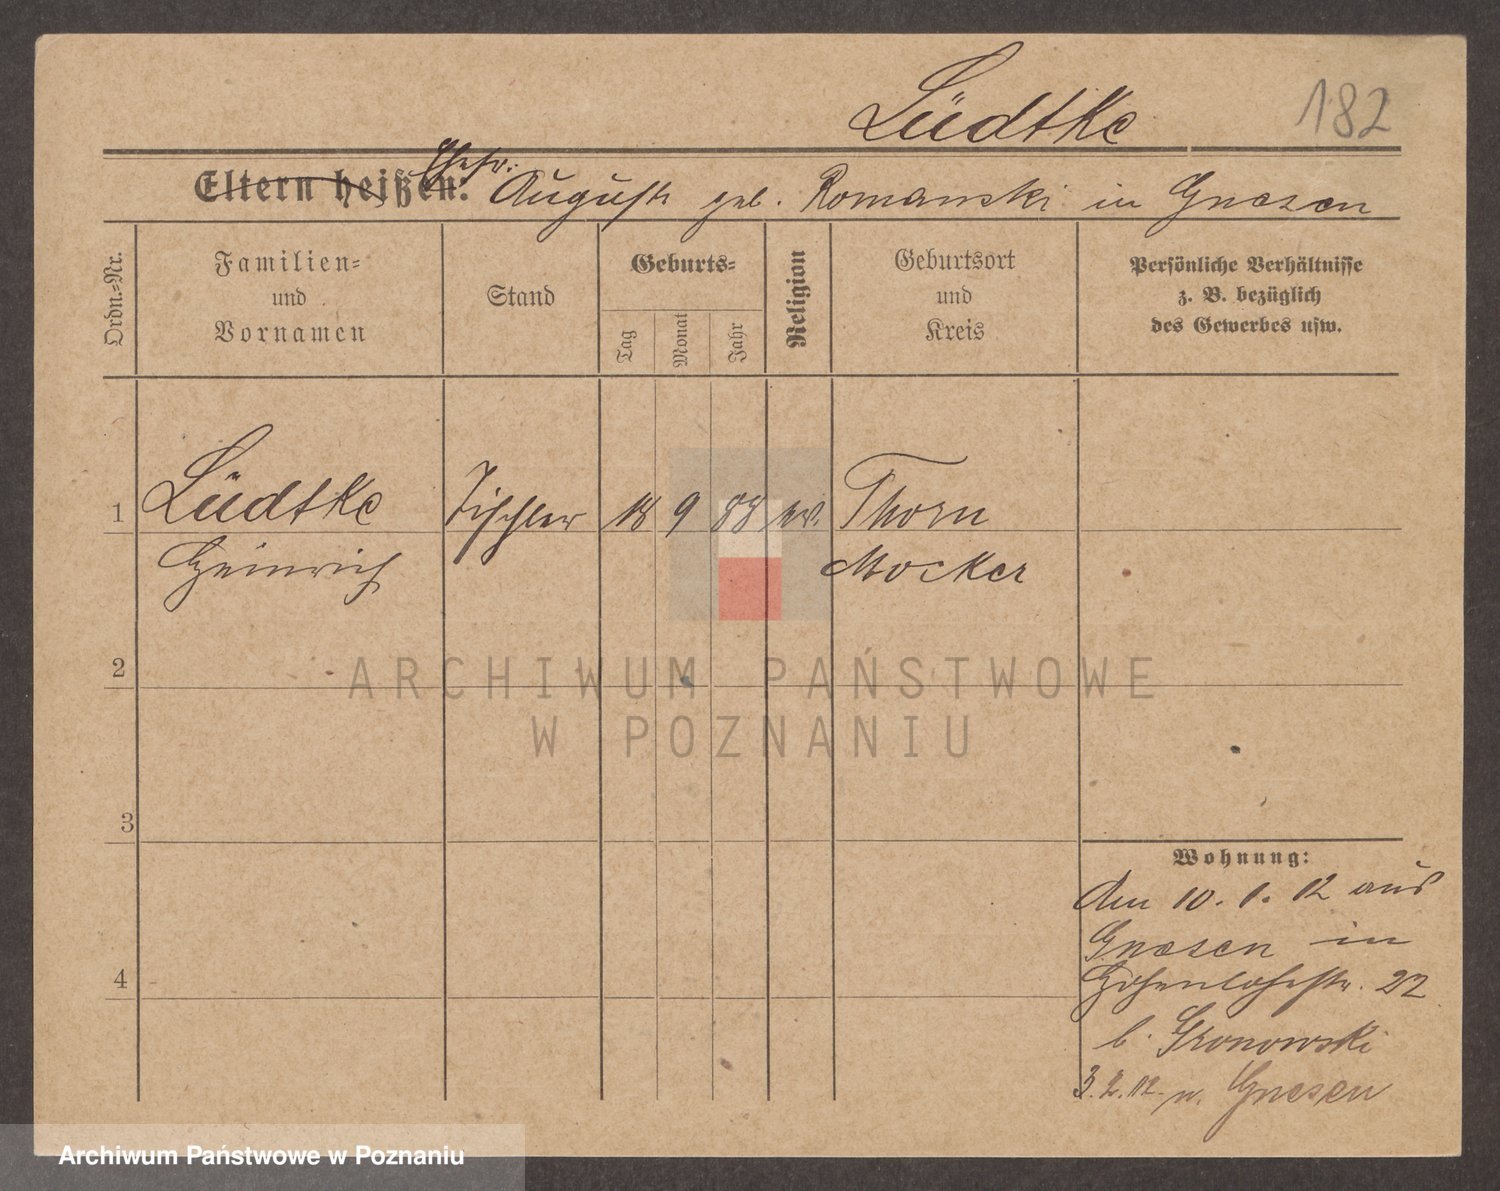 Lüdtke
182
Eltern heißen: Ehefr: Auguste geb. Romanski in Gnesen
Ordn.-Nr.
Familien-
und
Vornamen
Stand
Geburts-
Tag
Monat
Jahr
Religion
Geburtsort
und
Kreis
Persönliche Verhältnisse
z. B. bezüglich
des Gewerbes usw.
1
Lüdtke
Heinrich
Tischler
18
9
88
ev.
Thorn
Mocker
2
3
4
Wohnung:
Am 10. 1. 12 aus
Gnesen in
Hohenlohestr. 22
b. Gronowski
3. 2. 12. n. Gnesen
ARCHIWUM PAŃSTWOWE
W POZNANIU
Archiwum Państwowe w Poznaniu